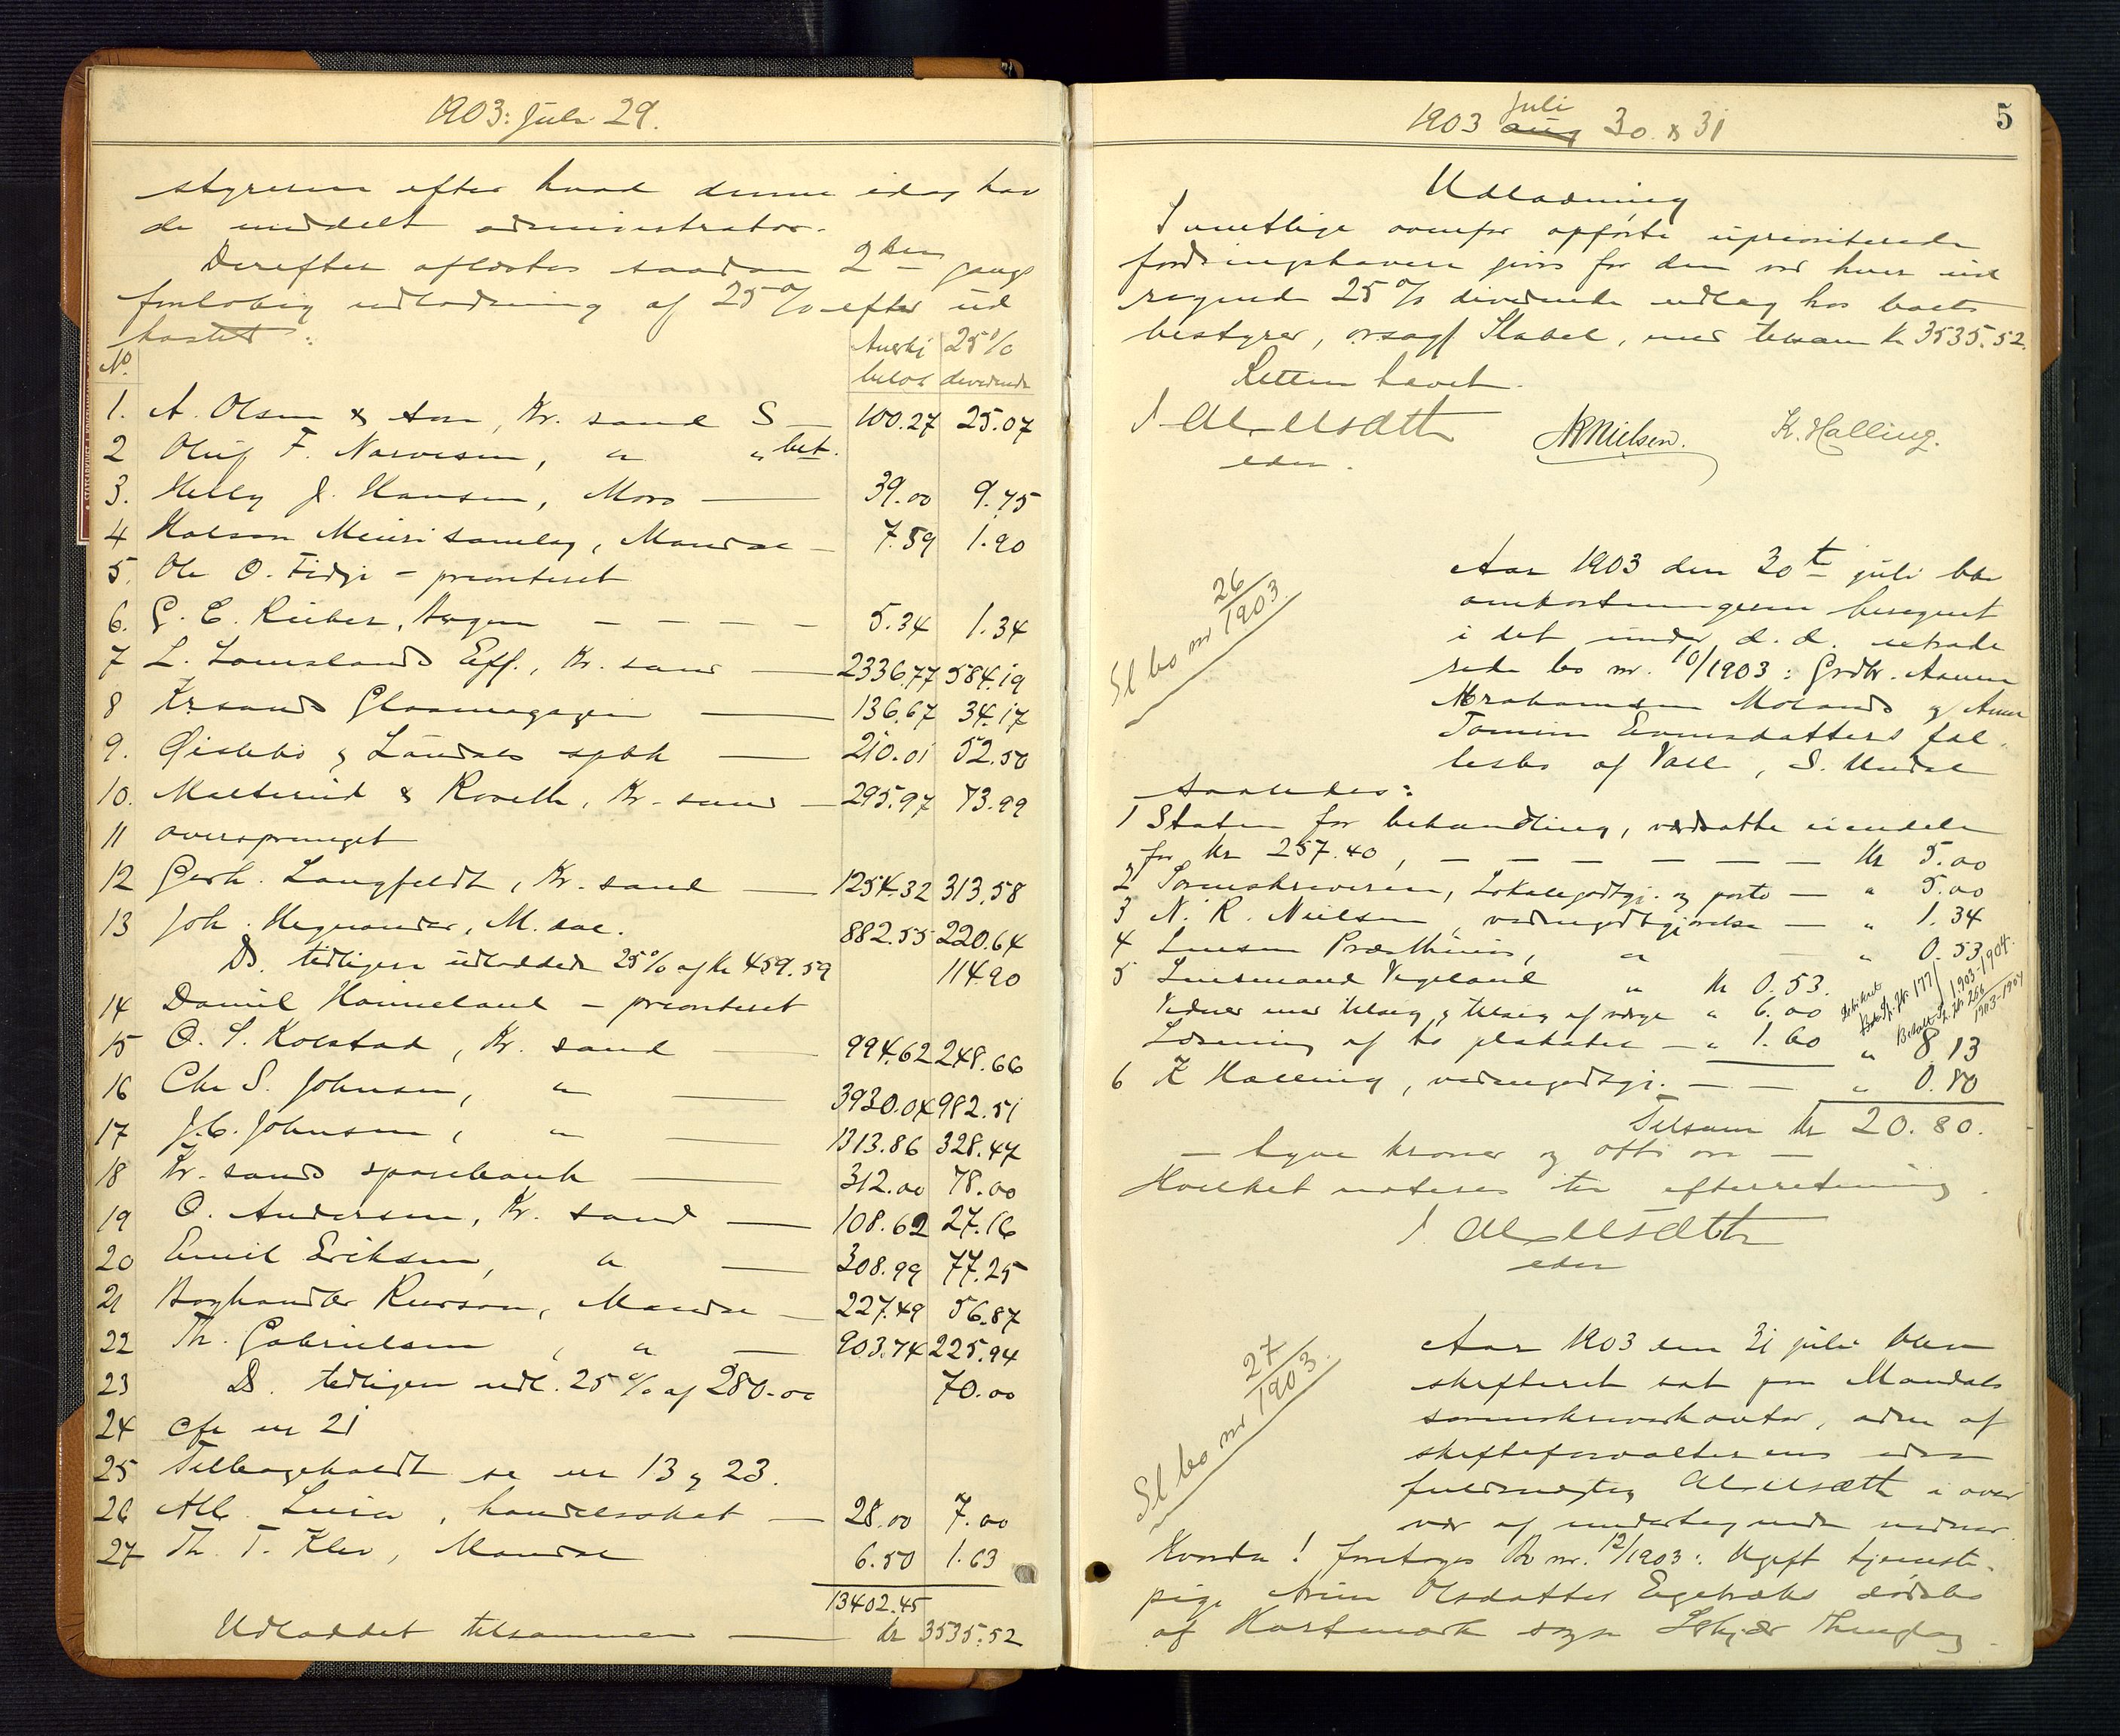 1903: Juli 29.
styreren efter hvad denne idag hav
de meddelt administrator.
Derefter afl saadan 2den gangs
foreløbig udlodning af 25 % efter ud
kastet:
No.
Anerkj. beløb
25 % dividende
1. A. Olsen & Søn, Kr. sand S — 100.27 25.07
2 Oluf F. Narvesen, " " bet.
3. Helly J. Hansen, Moss — 39.00 9.75
4 Holum Meierisamlag, Mandal — 7.59 1.90
5. Ole O. Fidje – prioriteret
6. G. C. Rieber, Bergen — — — — 5.34 1.34
7 L. Lomelands Eff., Kr. sand — 2336.77 584.19
8 Kr.sands Glasmagasin — 136.67 34.17
9. Øislebø & Laudals spbk — 210.01 52.50
10. Malterud & Rovelth, Kr. sand — 295.97 73.99
11 oversprunget
12 Gerh. Langfeldt, Kr. sand — 1254.32 313.58
13 Joh. , M. dal. 882.55 220.64
Do. tidligere udloddede 25 % af kr 459.59 114.90
14 Daniel Homeland – prioriteret
15 O. S. Kolstad, Kr. sand — 994.62 248.66
16 Chr S. Johnsen, " — 3930.04 982.51
17 J. C. Johnsen, " — 1313.86 328.47
18 Kr. sands sparebank — 312.00 78.00
19 O. Andersen, Kr. sand — 108.62 27.16
20 Emil Eriksen, " — 308.99 77.25
21 Boghandler , Mandal — 227.49 56.87
22 Th. Gabrielsen, " — 903.74 225.94
23 Do. tidligere udl. 25 % af 280.00 70.00
24 cfr nr 21
25 Tilbageholdt se nr 13 & 23.
26 Alb. , handelsakat — 28.00 7.00
27 Th. T. Klev, Mandal 6.50 1.63
13402.45
Udloddet tilsammen — kr 3535.52
1903 Juli aug 30 & 31
5
Udlodning
Samtlige ovenfor opførte uprioriterede
fordringshavere gives for den ved hver ud
regnede 25 % dividende udlæg hos boets
bestyrer, orsagf Stabel, med tilsam kr 3535.52.
Retten hævet.
edsv.
NR Nielsen.
K. Halling.
Sl bo nr 26/1903
Aar 1903 den 30te juli ble
omkostningerne beregnet
i det under d. d. extrade
rede bo nr. 10/1903: Grdbr. Aanen
Abrahamsen Molands og Anne
Tomine Evensdatters fæl
lesbo af Valle, S. Undal
saaledes:
1 Staten for behandling, værdsatte eiendele
for kr 257.40, — — — — — — kr 5.00
2 Sorenskriveren, Lokalegodtgj. og porto — " 5.00
3 N. R. Nielsen, vidnegodtgjørelse — " 1.34
4 Lensm Præsthuus, " — " 0.53
5 Lensmand Vigeland " kr 0.53.
Vidner med tilsig & tilsig af værge " 6.00
Læsning af to plakater — " 1.60 " 8 13
6 K Halling, vidnegodtgj. — — " 0.80
Tilsam kr 20.80.
— tyve kroner og otti øre —
Hvilket noteres til efterretning.
edsv
Sl bo nr 27/1903.
Aar 1903 den 31 juli blev
skifteret sat paa Mandals
sorenskriverkontor, adm af
skifteforvalterens edsv
fuldmægtig i over
vær af undertegnede vidner.
Hvorda! foretoges Bo nr. 12/1903: Ugift tjeneste-
pige Olsdatter Egebæks dødsbo
af Hartmark sogn thinglag.